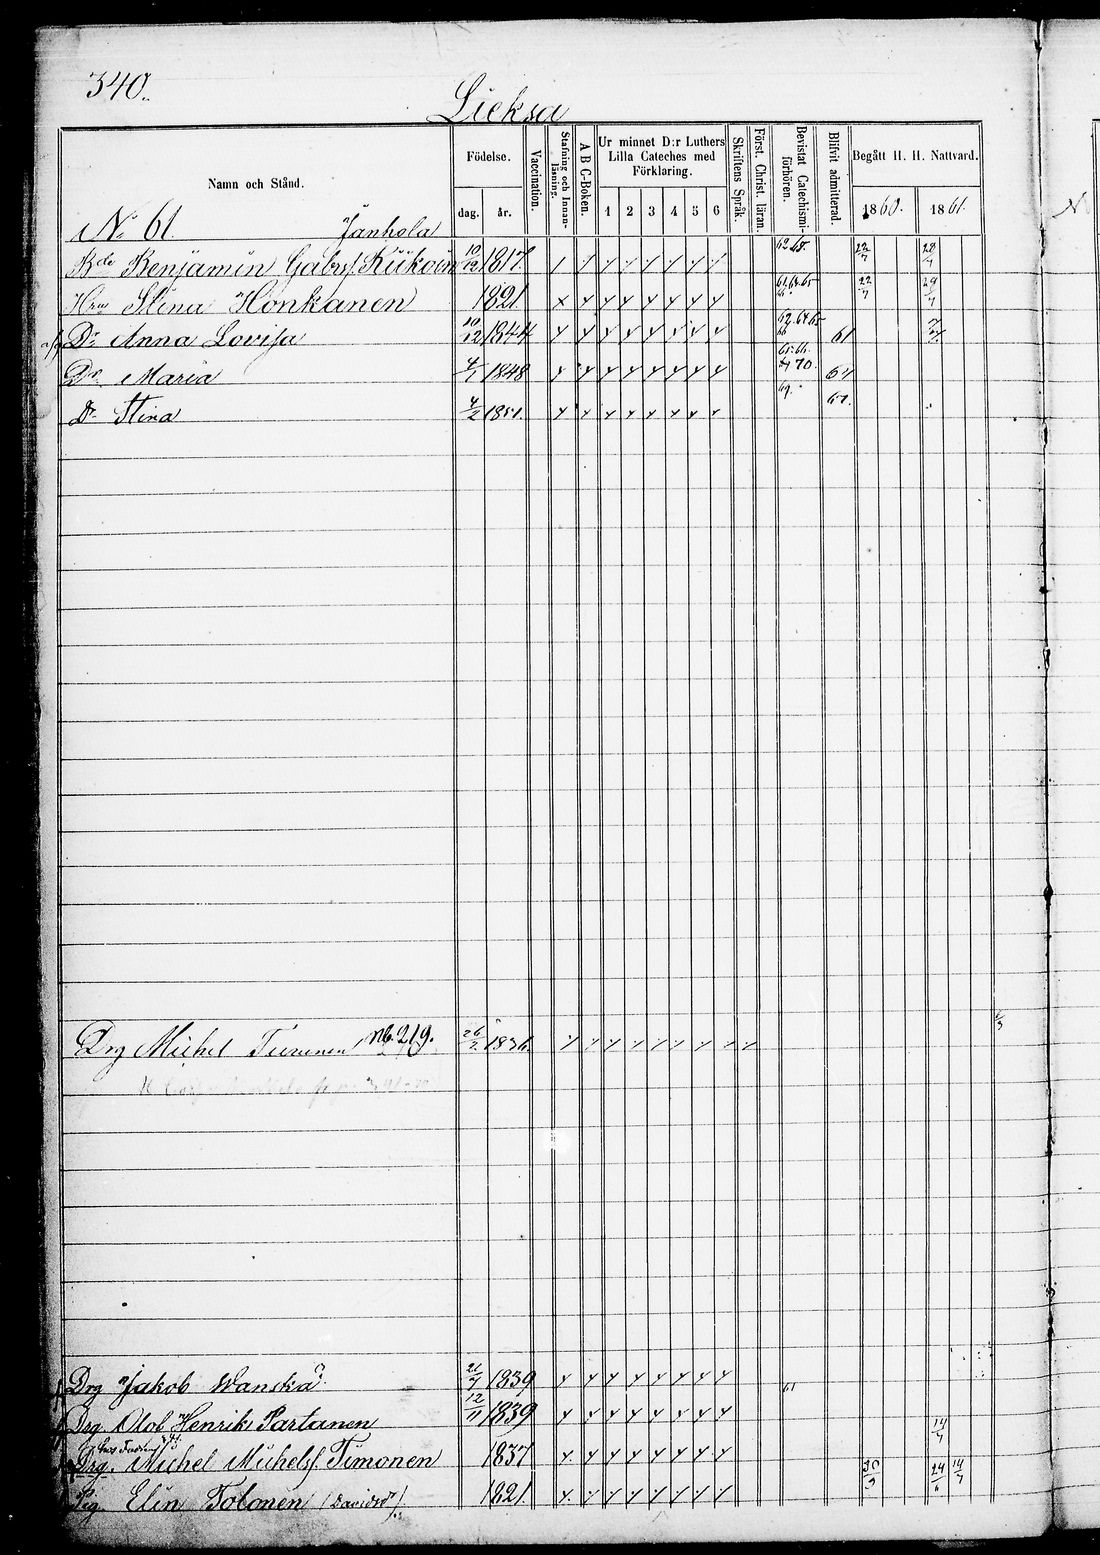 340.
Lieksa
Namn och Stånd. Födelse. dag. år. Vaccination. Stafning och Innanläsning. A B C-Boken. Ur minnet D:r Luthers Lilla Cateches med Förklaring. 1 2 3 4 5 6 Skriftens Språk. Först. Christ. läran. Bevistat Catechismiförhören. Blifvit admitterad. Begått H. H. Nattvard. 1860. 1861.
No 61. Jänhola
Bde Benjamin Gabrs. Kiikoin 10/12 1817
Hru Stina Honkanen 1821 22/7
Dr Anna Lovisa 10/12 1844 62.64.65 61
Dr Maria 4/7 1848 70.
Dr Stina 4/2 1851. 69.
Drg Michel Turunen No 219. 26/2 1836.
Drg Jakob Wanska 1839 61
Drg. Olof Henrik Partanen 12/11 1839 14/7
Drg. Michel Michels. Timonen 1837 20/3 24/6 14/7
Pig. Elin Tolonen (Davidsdr). 1821